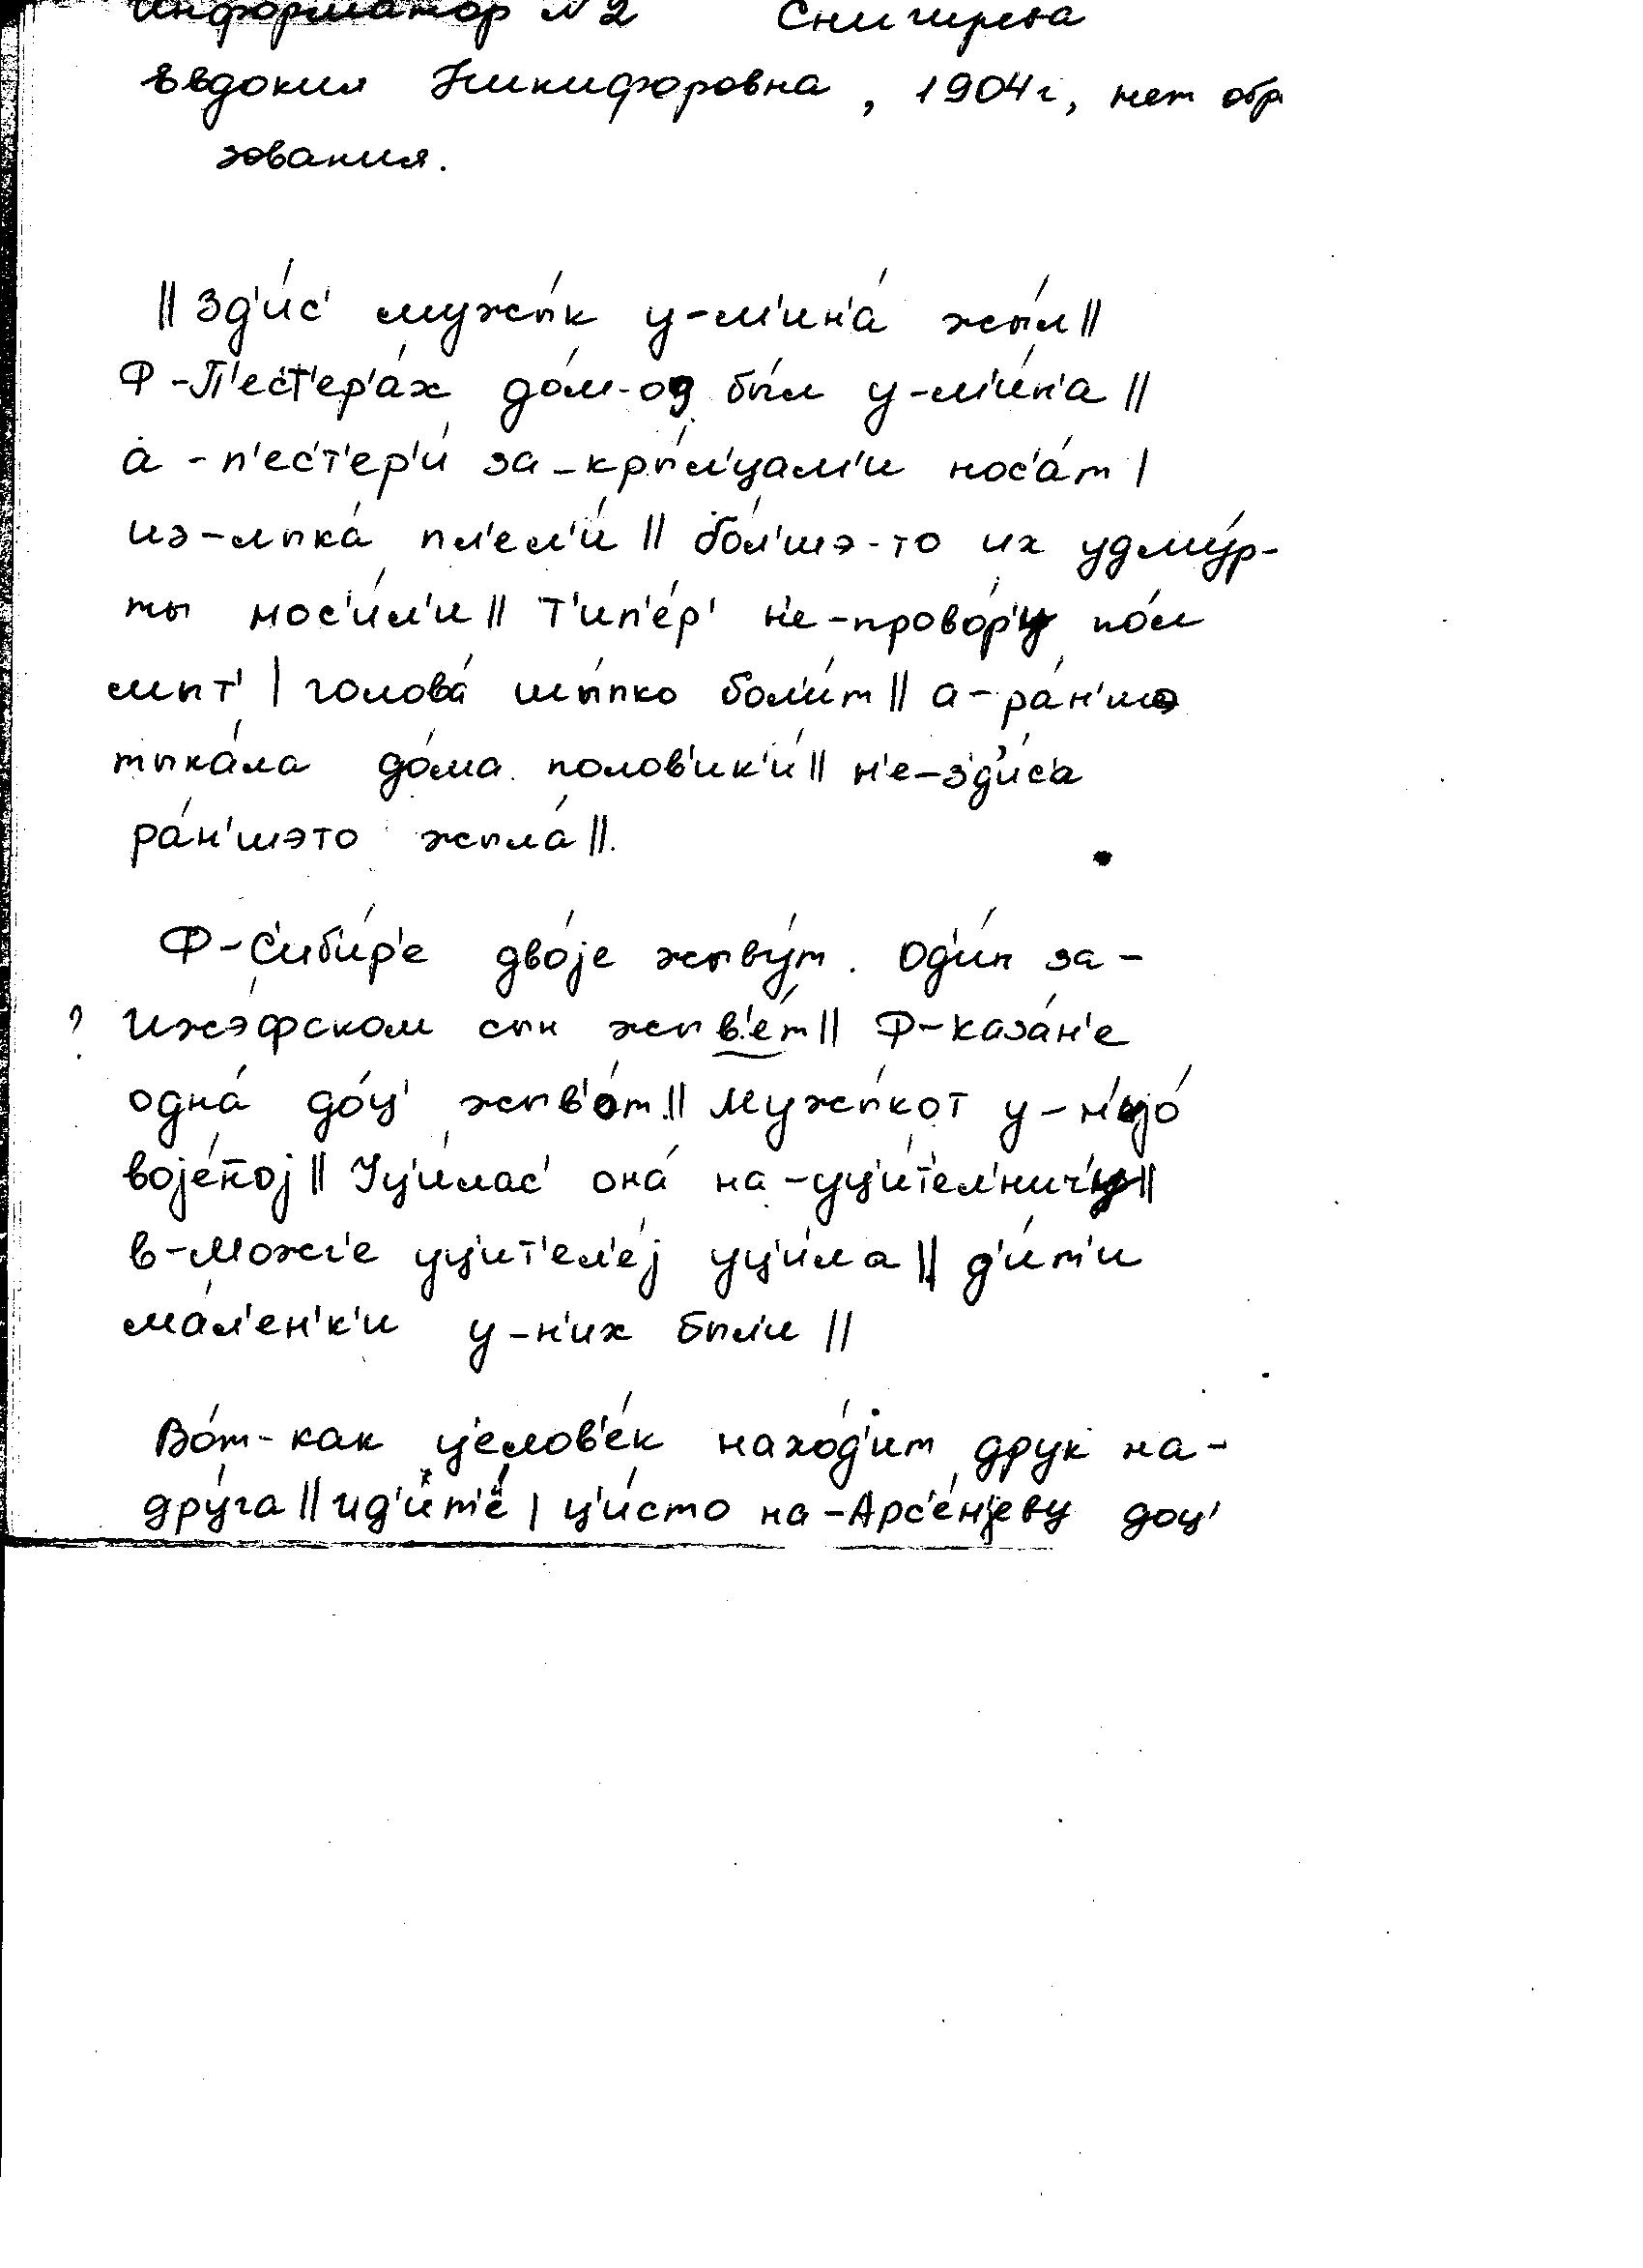 Информатор №2 Снигирева
Евдокия Никифоровна, 1904г, нет обра
зования.
|| Зд'и́с' мужы́к у-м'ин'а́ жы́л ||
Ф-П'ес'т'ер'а́х до́м-од бы́л у-м'и́н'а ||
а-п'ес'т'ер'и́ за-кры́л'цам'и нос'а́т |
из-лыка́ пл'ел'и́ || бо́л'шэ-то их удму́р-
ты нос'и́л'и || Т'ип'е́р' н'е-прово́р'у по́л
мыт' | голова́ шы́пко бол'и́т || а-ра́н'шэ
тыка́ла до́ма полов'ик'и́ || н'е-з'д'и́с'а
ра́н'шэто жыла́ ||.
Ф-С'иб'и́р'е дво́jе жыву́т. Од'и́н за-
? Ижэ́фском сын жыв'е́т || Ф-каза́н'е
одна́ до́ц' жыв'о́т || Мужы́кот у-н'иjо́
воjе́н̄оj || Уц'и́лас' она́ на-уц'и́т'ел'ниц'у ||
в-Можг'е уц'ит'ел'е́j уц'и́ла || д'и́т'и
ма́л'ен'к'и у-н'их был'и ||
Во́т-как ц'елов'е́к нахо́д'ит друк на-
дру́га || ид'и́т'е́ | ц'и́сто на-Арс'е́н'jеву доц'